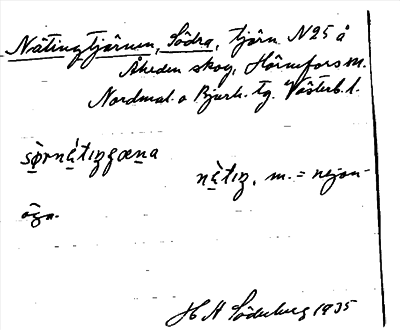 Nätingtjärnen, Södra, tjärn N25 å
Åheden skog, Hörnefors sn.
Nordmal. o Bjurh. tg. Västerb. l.
sø̀rnä̀tıŋɡæna
nä̀tıŋ, m. = nejon-
öga.
H A Söderberg 1935